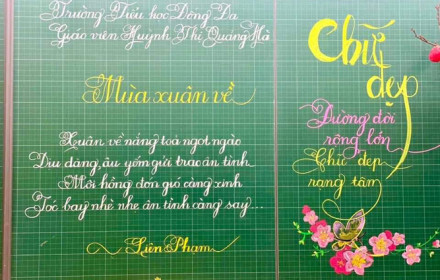 Trường Tiểu học Đống Đa
Giáo viên Huỳnh Thị Quảng Hà
Mùa xuân về
Xuân về nắng toả ngọt ngào
Dịu dàng, âu yếm gửi trao ân tình
Môi hồng đón gió càng xinh
Tóc bay nhè nhẹ ân tình càng say...
Liên Phạm
Chữ
đẹp
Đường đời
rộng lớn
Chữ đẹp
rạng tâm